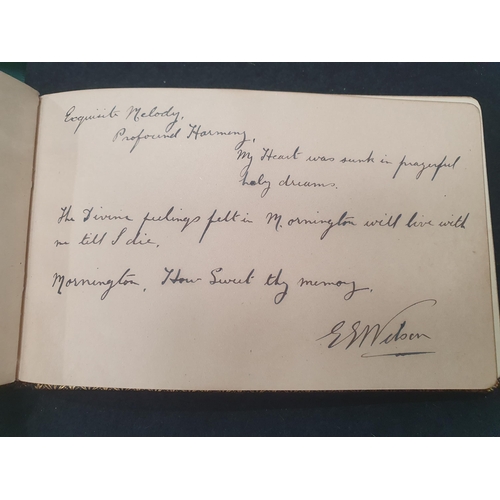 Exquisite Melody,
Profound Harmony,
My Heart was sunk in prayerful
holy dreams.
The Divine feelings felt in M.ornington will live with
me till I die.
Mornington, How Sweet thy memory.